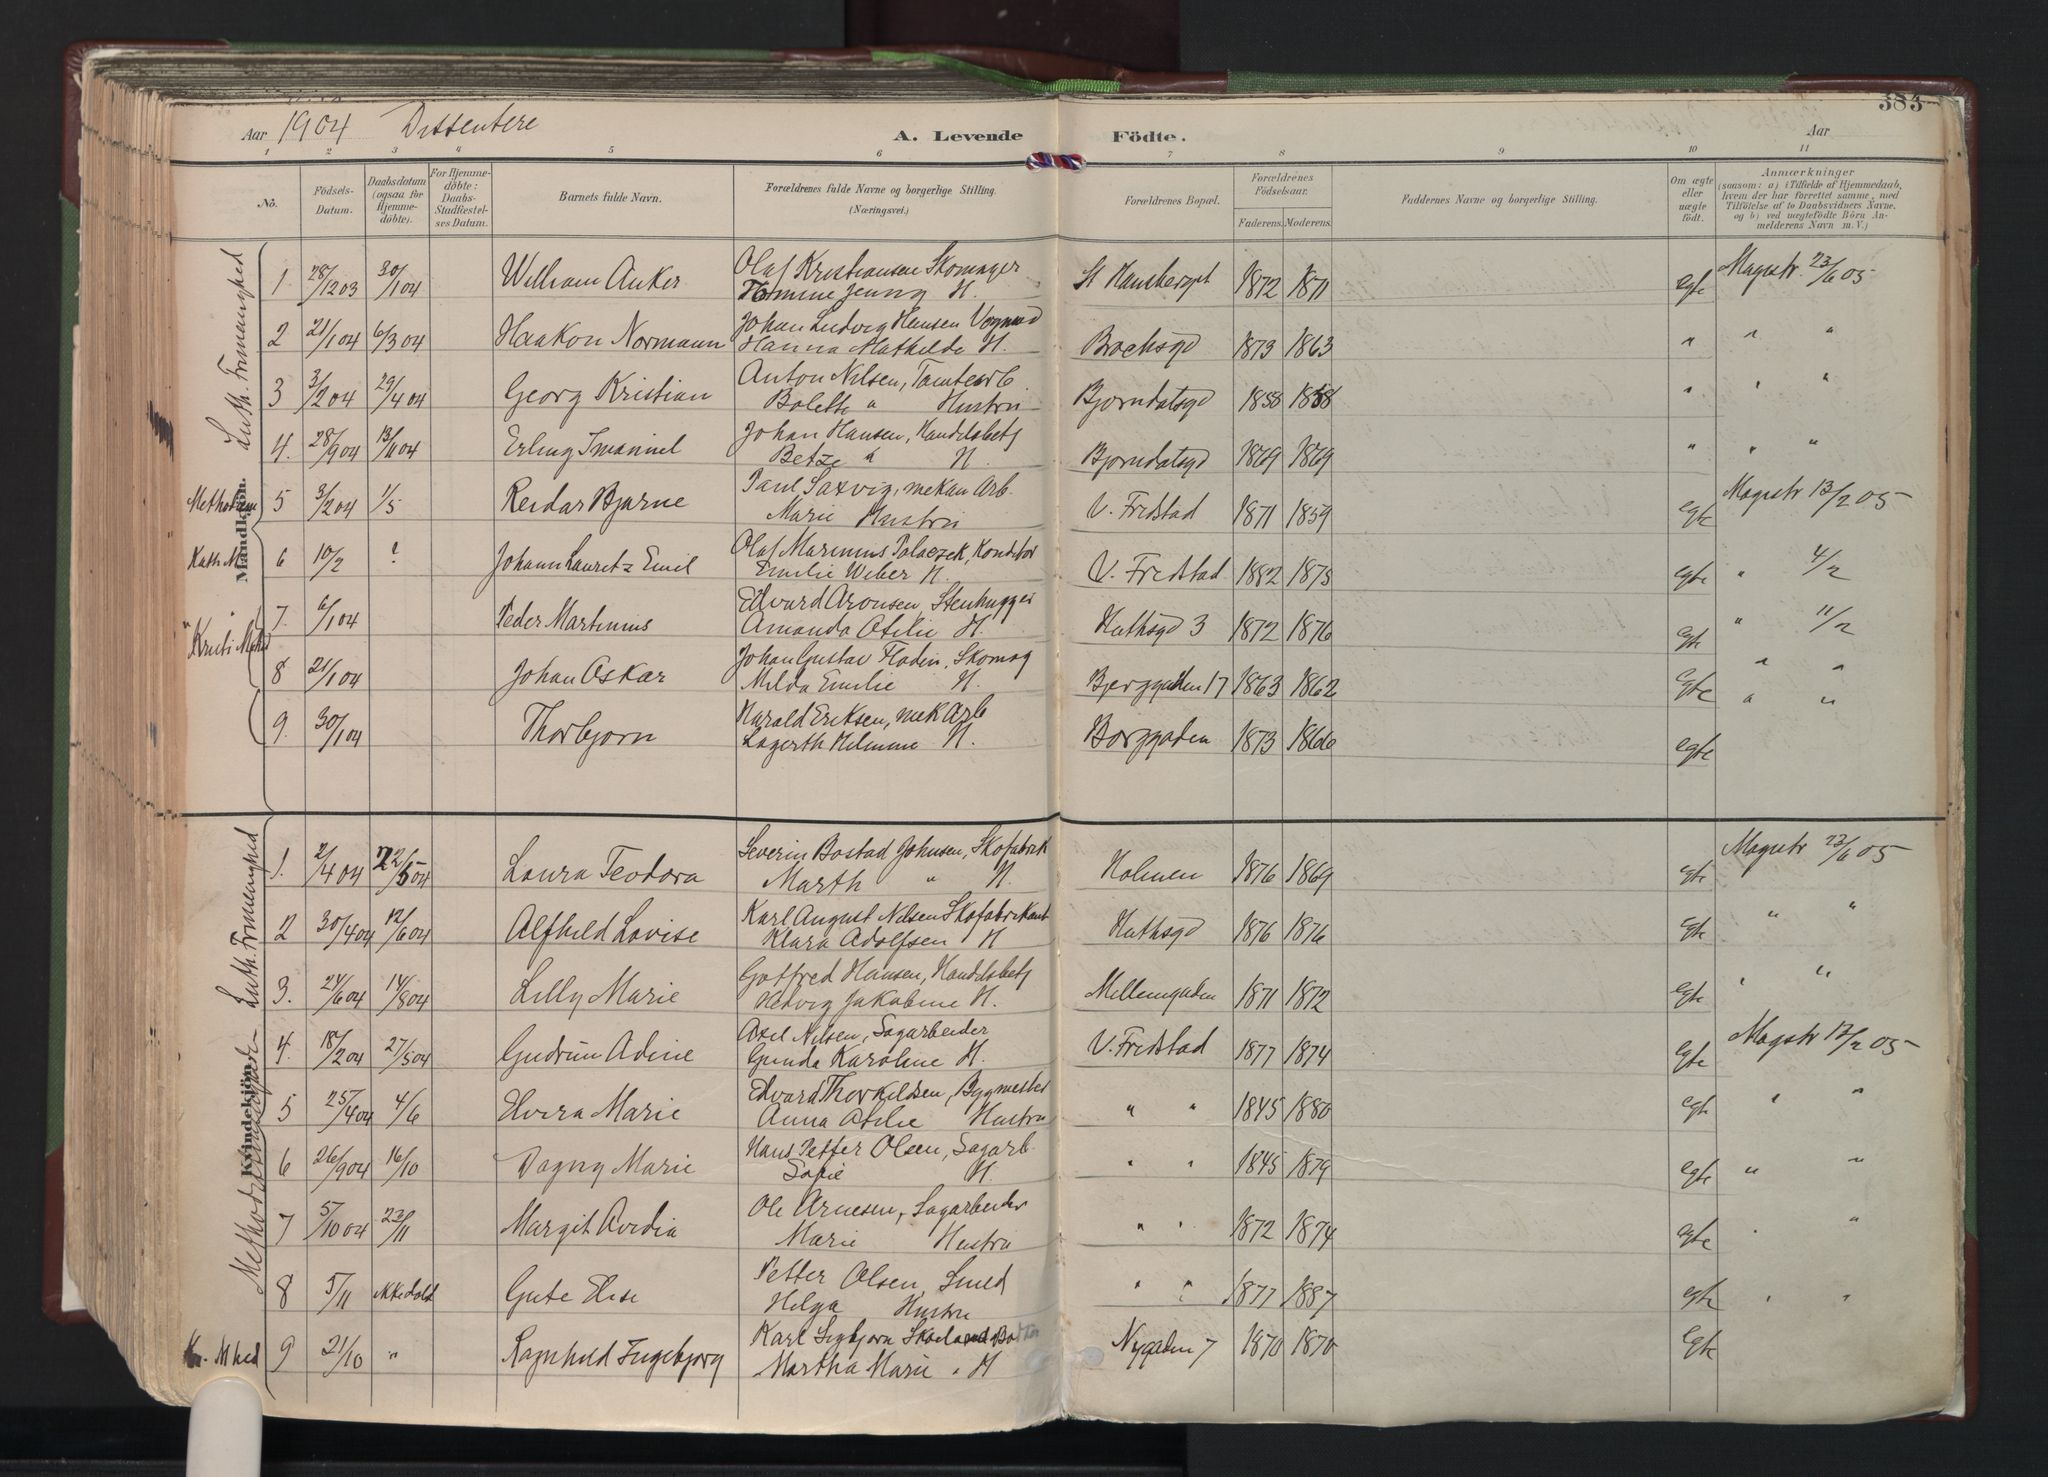 383
Aar 1904 Dissentere A. Levende Födte. Aar
1 2 3 4 5 6 7 8 9 10 11
No. Födsels-Datum. Daabsdatum (ogsaa for Hjemmedöbte). For Hjemmedöbte: Daabs-Stadfæstelses Datum. Barnets fulde Navn. Forældrenes fulde Navne og borgerlige Stilling. (Næringsvei.) Forældrenes Bopæl. Forældrenes Födselsaar. Faderens. Moderens. Faddernes Navne og borgerlige Stilling. Om ægte eller uægte födt. Anmærkninger (saasom: a) i Tilfælde af Hjemmedaab, hvem der har forrettet samme, med Tilföielse af to Daabsvidners Navne, og b) ved uægtefödte Börn Anmelderens Navn m. V.)
Mandkjön.
Luth. Frimenighed
1. 28/12 03 30/1 04 William Anker Olaf Kristiansen Skomager St Hansberget 1872 1871 egte Magistr. 23/6 05
Jenny H.
2 21/1 04 6/3 04 Haakon Normann Johan Ludvig Hansen Brochsgd 1873 1863 " " "
Hanna Mathilde H.
3 3/2 04 29/4 04 Georg Kristian Anton Nilsen, Tomtearb. Bjorndalsgd 1858 1858 " " "
Bolette " Hustru
4. 28/9 04 13/11 04 Erling Imanuel Johan Hansen, Handelsbetj Bjorndalsgd 1869 1869 " " "
Betze " H.
Methodism 5 3/2 04 1/5 Reidar Bjarne Paul Saxvig, mekan Arb. V. Fredstad 1871 1859 egte Magistr 13/2 05
Marie Hustru
Kath M. 6 10/2 ? Johann Lauretz Emil Olaf Marinius Palaczek, Konditor V. Fredstad 1882 1875 egte " 4/2
Emilie Weber H.
" 7. 6/1 04 Peder Martinius Edvard Aronsen, Stenhugger Huthsgd 3 1872 1876 egte " 11/2
Amanda Otilie H.
Kristi Mhed
8 21/1 04 Johan Oskar Johan Gustav Flodin, Skomag Bjerggaden 17 1863 1862 egte " "
Milda Emilie H.
9. 30/1 04 Thorbjorn Harald Eriksen, mek Arb Borggaden 1873 1866 egte " "
Lagerth Helmine H.
Kvindekjön.
Luth. Frimenighed
1. 2/4 04 22/5 04 Laura Teodora Severin Bostad Johnsen, Skofabrik Holmen 1876 1869 egte Magistr 23/6 05
Marth " H.
2 30/4 04 12/6 04 Alfhild Lovise Karl August Nilsen Skofabrikant Huthsgd 1876 1876 egte " "
Klara Adolfsen H
3. 24/6 04 14/8 04 Lilly Marie Gotfred Hansen, Handelsbetj Mellemgaden 1871 1872 egte " "
Hedvig Jakobine H.
4. 18/2 04 27/5 04 Gudrun Adine Axel Nilsen, Sagarbeider V. Fredstad 1877 1874 egte Magstr 13/2 05
Gunda Karoline H.
5 25/4 04 4/6 Elvira Marie Edvard Thorkildsen, Bygmester " " 1845 1880 egte " "
Anna Otilie Hustru
6 26/9 04 16/10 Dagny Marie Hans Petter Olsen, Sagarb. " " 1845 1879 egte " "
Sofie H.
7 5/10 04 23/11 Margit Avedia Ole Arnesen, Sagarbeider " " 1872 1874 egte " "
Marie Hustru
8 5/11 ikke dobt Gute Elise Petter Olsen, Smed " " 1877 1887 egte " "
Helga Hustru
Kr. Mhed 9 21/10 " Ragnhild Ingebjorg Karl Sigbjorn Nygaden 7 1870 1870 egte
Martha Marie " H